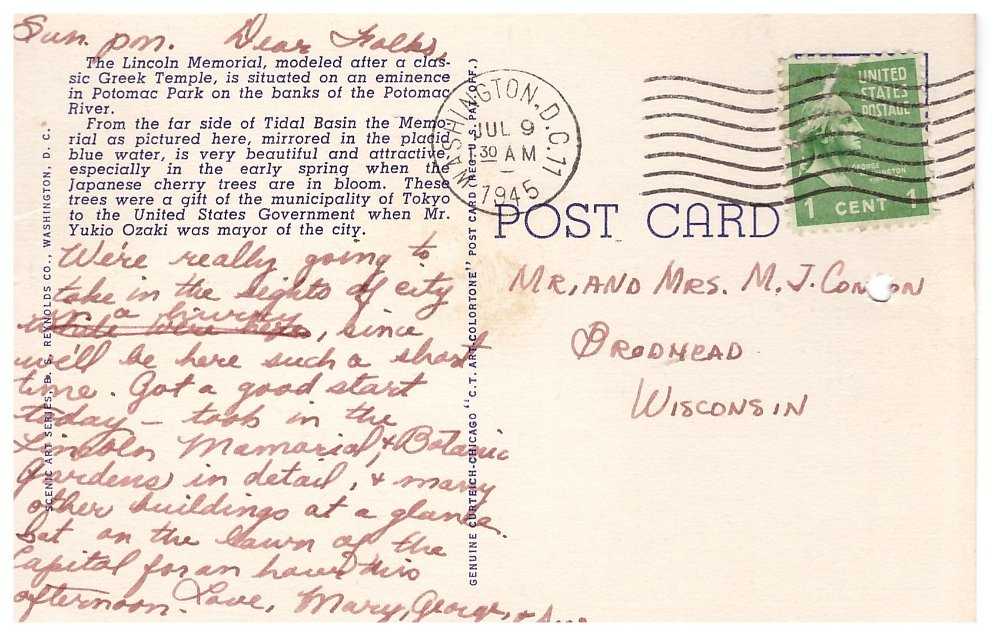 Sun. pm. Dear Folks,
The Lincoln Memorial, modeled after a clas-
sic Greek Temple, is situated on an eminence
in Potomac Park on the banks of the Potomac
River.
From the far side of Tidal Basin the Memo-
rial as pictured here, mirrored in the placid
blue water, is very beautiful and attractive,
especially in the early spring when the
Japanese cherry trees are in bloom. These
trees were a gift of the municipality of Tokyo
to the United States Government when Mr.
Yukio Ozaki was mayor of the city.
We're really going to
take in the sights of city
in a hurry
while we're here, since
we'll be here such a short
time. Got a good start
today - took in the
Lincoln Mamorial, & Botanic
Gardens in detail, & many
other buildings at a glance.
Sat on the lawn of the
Capitol for an hour this
afternoon. Love, Mary, George, &
SCENIC ART SERIES, D. S. REYNOLDS CO., WASHINGTON, D. C.
GENUINE CURTEICH-CHICAGO "C.T. ART-COLORTONE" POST CARD (REG. U.S. PAT. OFF.)
WASHINGTON, D.C. 11
JUL 9
30 AM
1945
UNITED
STATES
POSTAGE
GEORGE
WASHINGTON
1 CENT 1
POST CARD
MR. AND MRS. M. J. CON ON
BRODHEAD
WISCONSIN